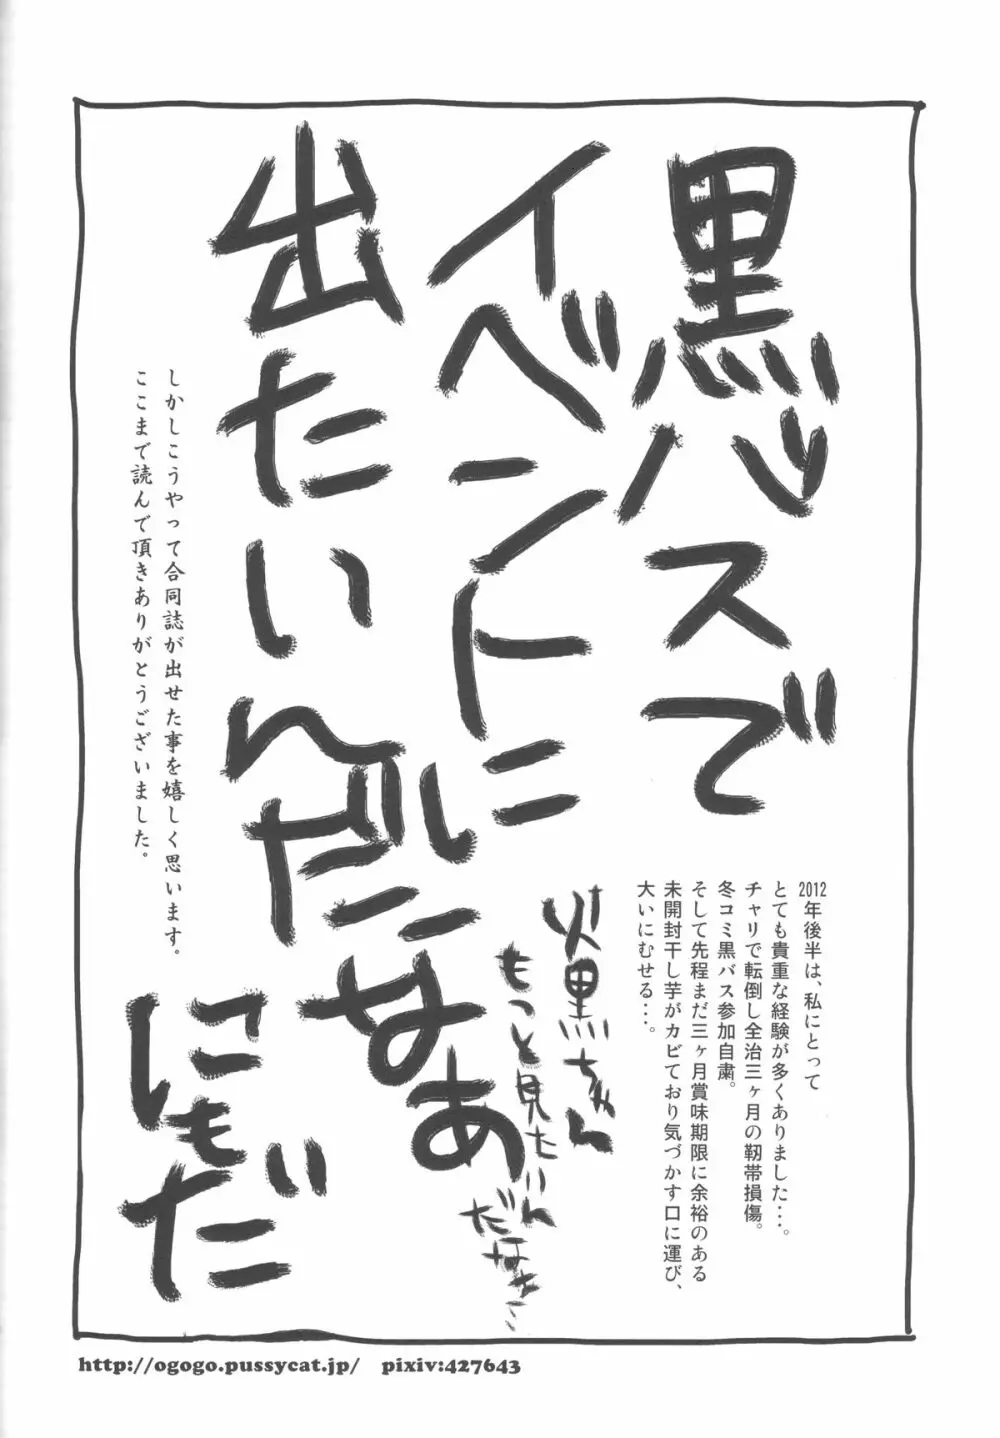 黒バスで
イベントに
出たいんだなあ
にもだ
2012年後半は、私にとって
とても貴重な経験が多くありました・・・。
チャリで転倒し全治三ヶ月の靭帯損傷。
冬コミ黒バス参加自粛。
そして先程まだ三ヶ月賞味期限に余裕のある
未開封干し芋がカビており気づかす口に運び、
大いにむせる・・・。
火黒ちゃん
もっと見たいん
だなあ…
しかしこうやって合同誌が出せた事を嬉しく思います。
ここまで読んで頂きありがとうございました。
http://ogogo.pussycat.jp/ pixiv:427643